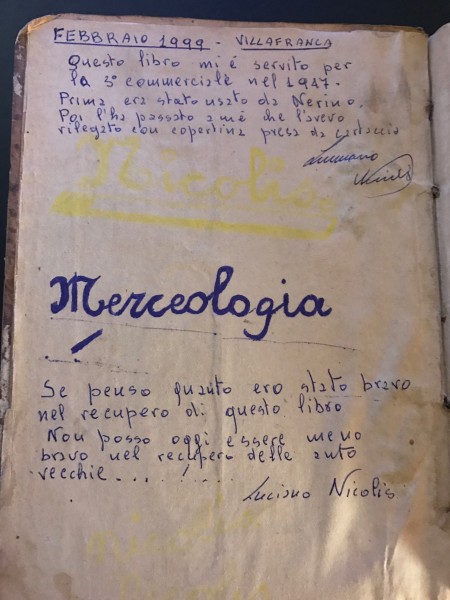 FEBBRAIO 1999 - VILLAFRANCA
Questo libro mi é servito per
la 3° commerciale nel 1947.
Prima era stato usato da Nerino.
Poi l'ha passato a mé che l'avevo
rilegato con copertina presa da cartaccia
Luciano
Nicolis
Nicolis
Merceologia
Se penso quanto ero stato bravo
nel recupero di questo libro
Non posso oggi essere meno
bravo nel recupero delle auto
vecchie.....!....
Luciano Nicolis
Nicolis